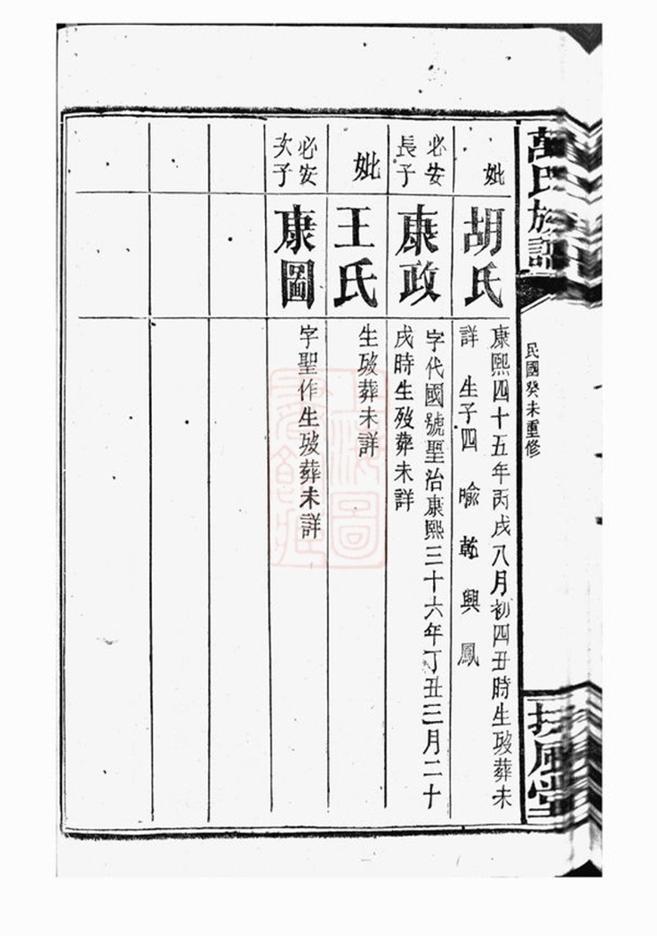 萬氏族譜
民國癸未重修
扶風堂
妣
胡氏
康熙四十五年丙戌八月初四丑時生歿葬未
詳 生子四 喻 乾 興 鳳
必安
長子
康政
字代國號聖治康熙三十六年丁丑三月二十
戌時生歿葬未詳
妣
王氏
生歿葬未詳
必安
次子
康圖
字聖作生歿葬未詳